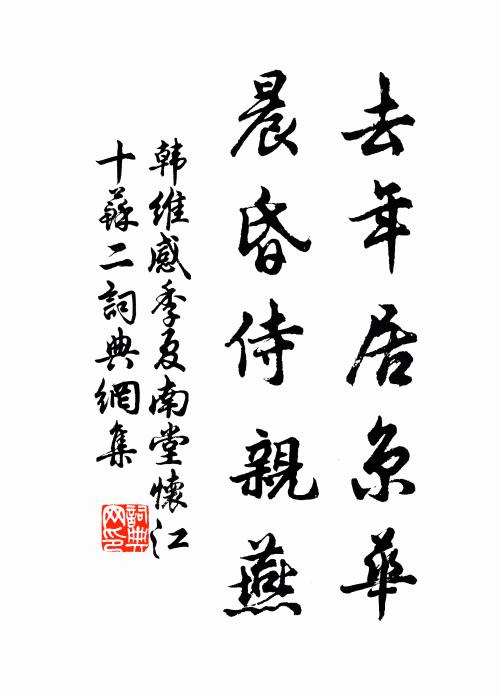 去年居京華
晨昏侍親燕
韩維感季夏南堂懷江
十蘇二詞典網集
詞典
网印